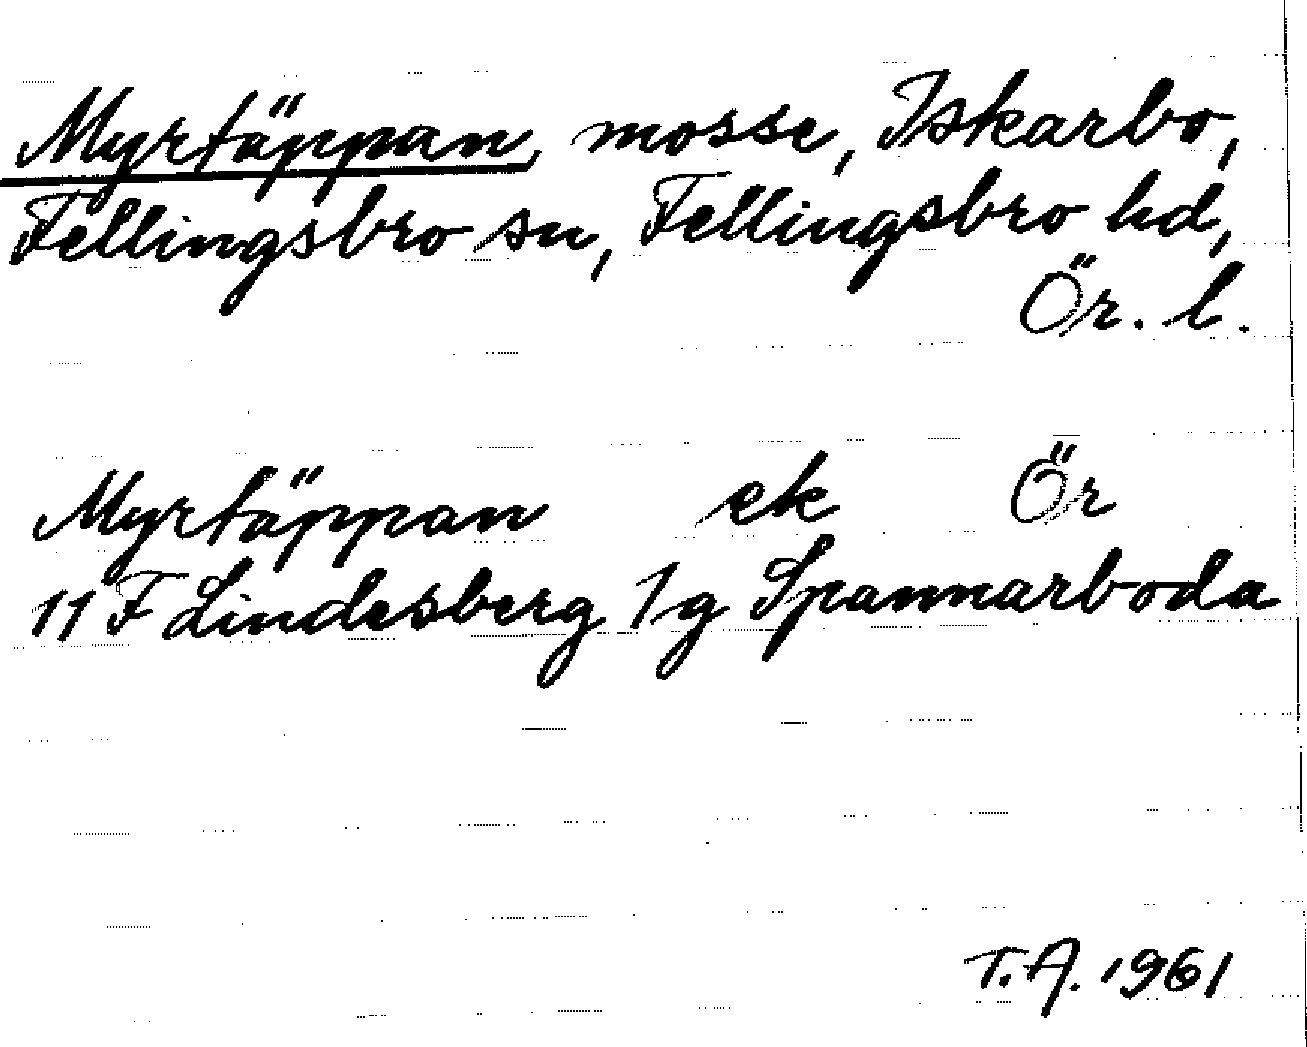 Myrtäppan, mosse, Iskarbo,
Fellingsbro sn, Fellingsbro hd,
Ör. l.
Myrtäppan ek Ör
11 F Lindesberg 1g Spannarboda
T.A. 1961